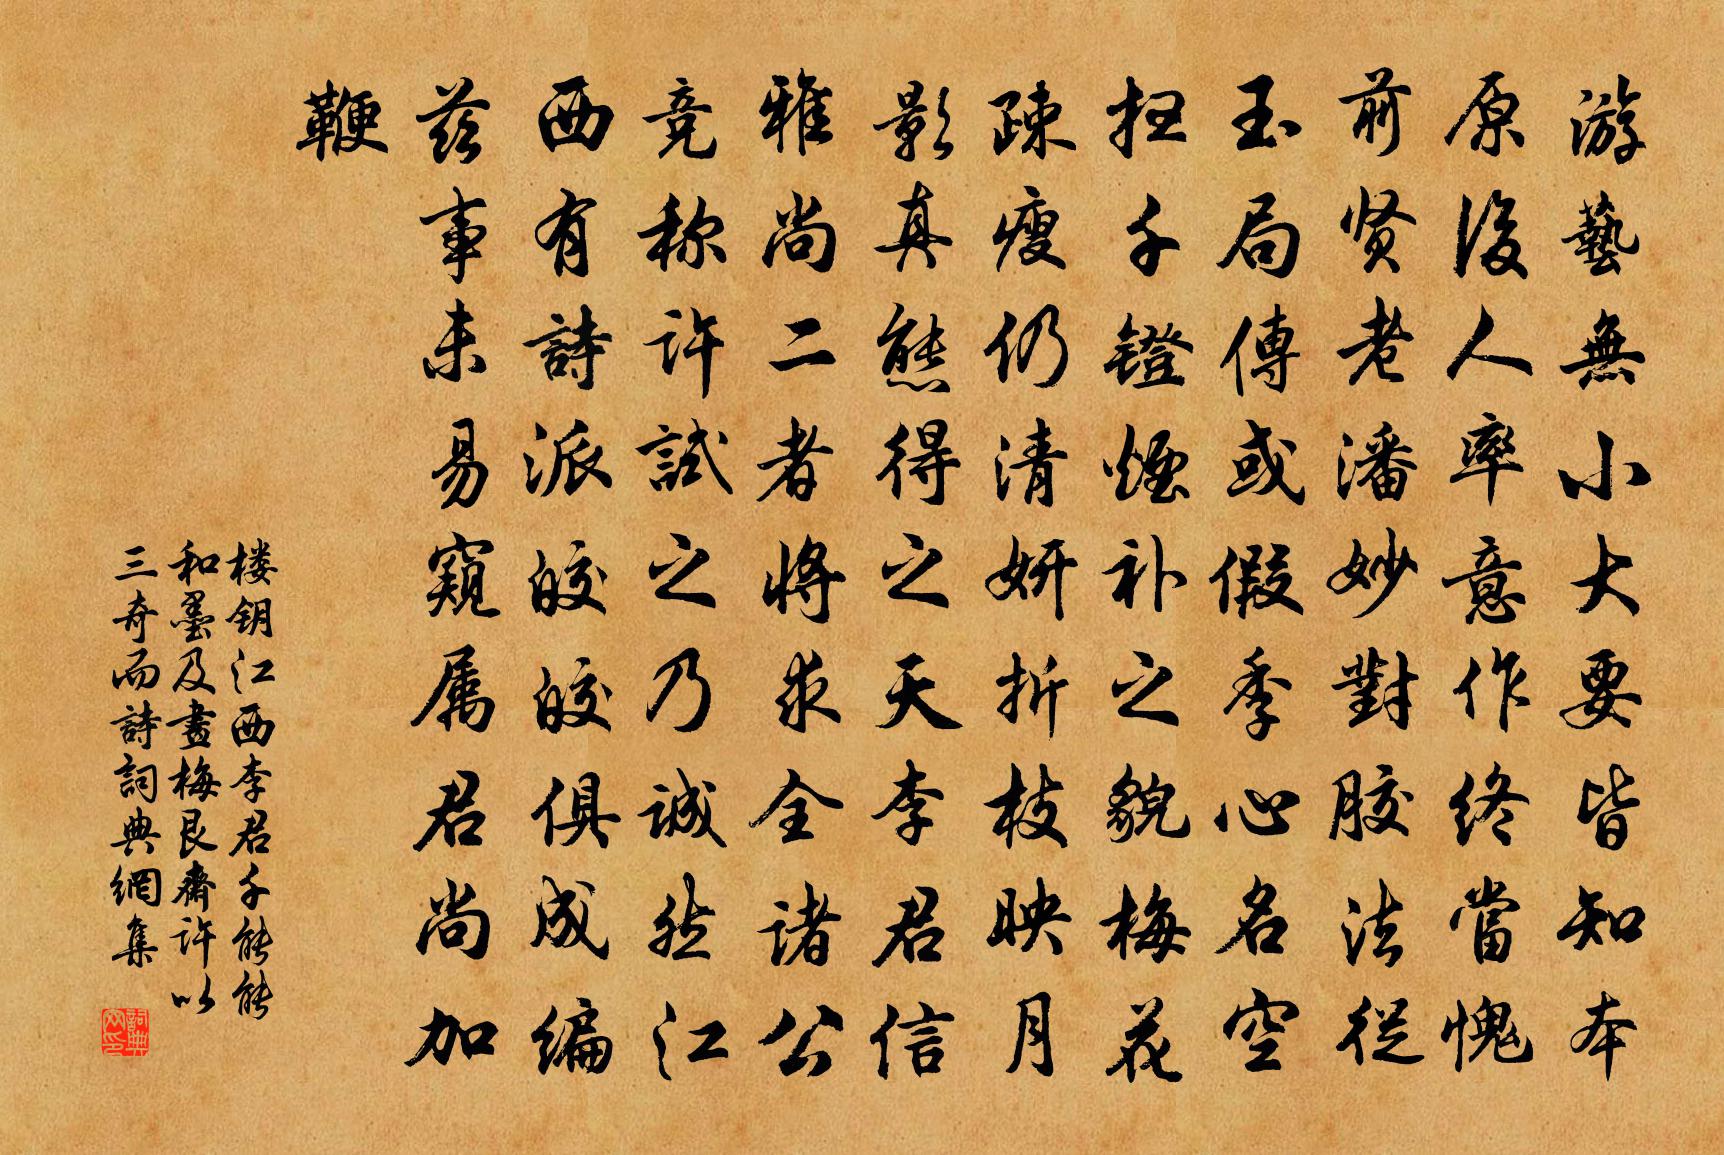 游藝無小大要皆知本
原後人率意作終當愧
前贤老潘妙對胶法從
玉局傳或假季心名空
扭千鐙煙补之貌梅花
疎瘦仍清妍折枝映月
影真態得之天李君信
雅尚二者將求全诸公
竞称许試之乃诚然江
西有詩派皎皎俱成编
兹事未易窥属君尚加
鞭
楼钥江西李君千能能
和墨及畫梅艮齋许以
三奇而詩詞典網集
詩詞典網